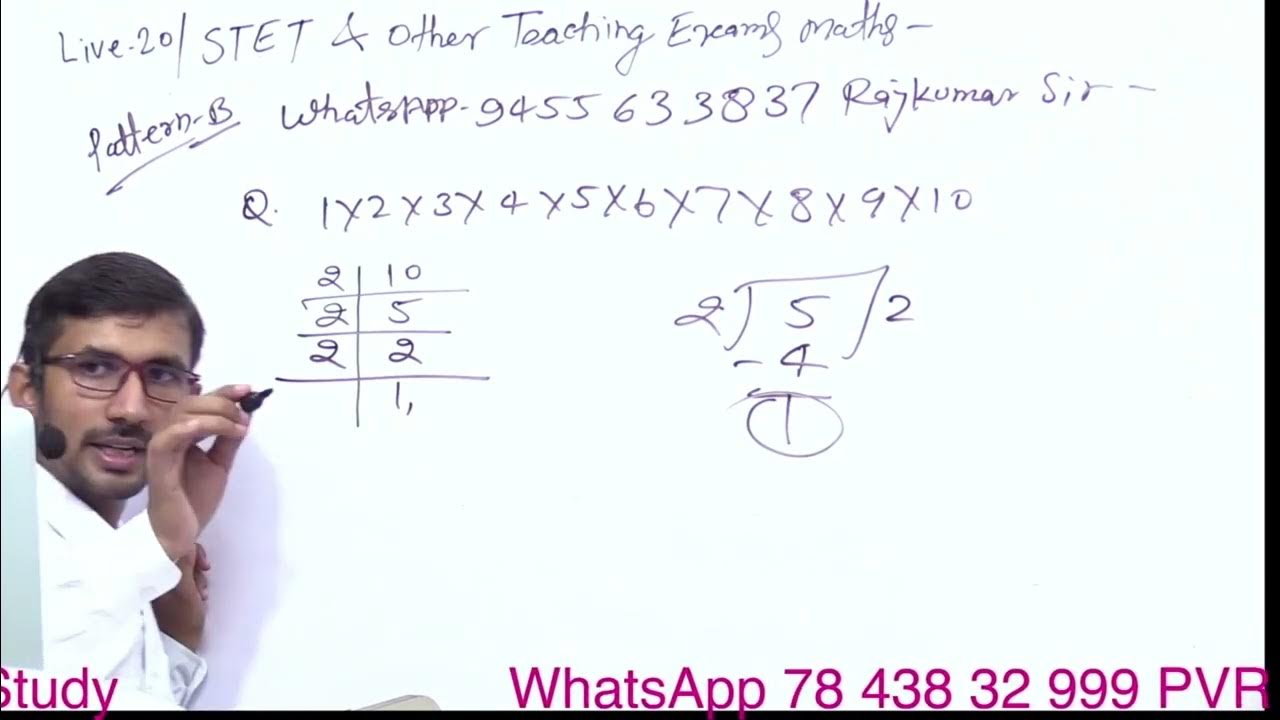 Live-20/ STET & Other Teaching Exams maths-
Pattern-B WhatsApp-9455 633837 Rajkumar Sir-
Q. 1×2×3×4×5×6×7×8×9×10
2 | 10
2 | 5
2 | 2
1,
2) 5 /2
-4
1
Study WhatsApp 78 438 32 999 PVR